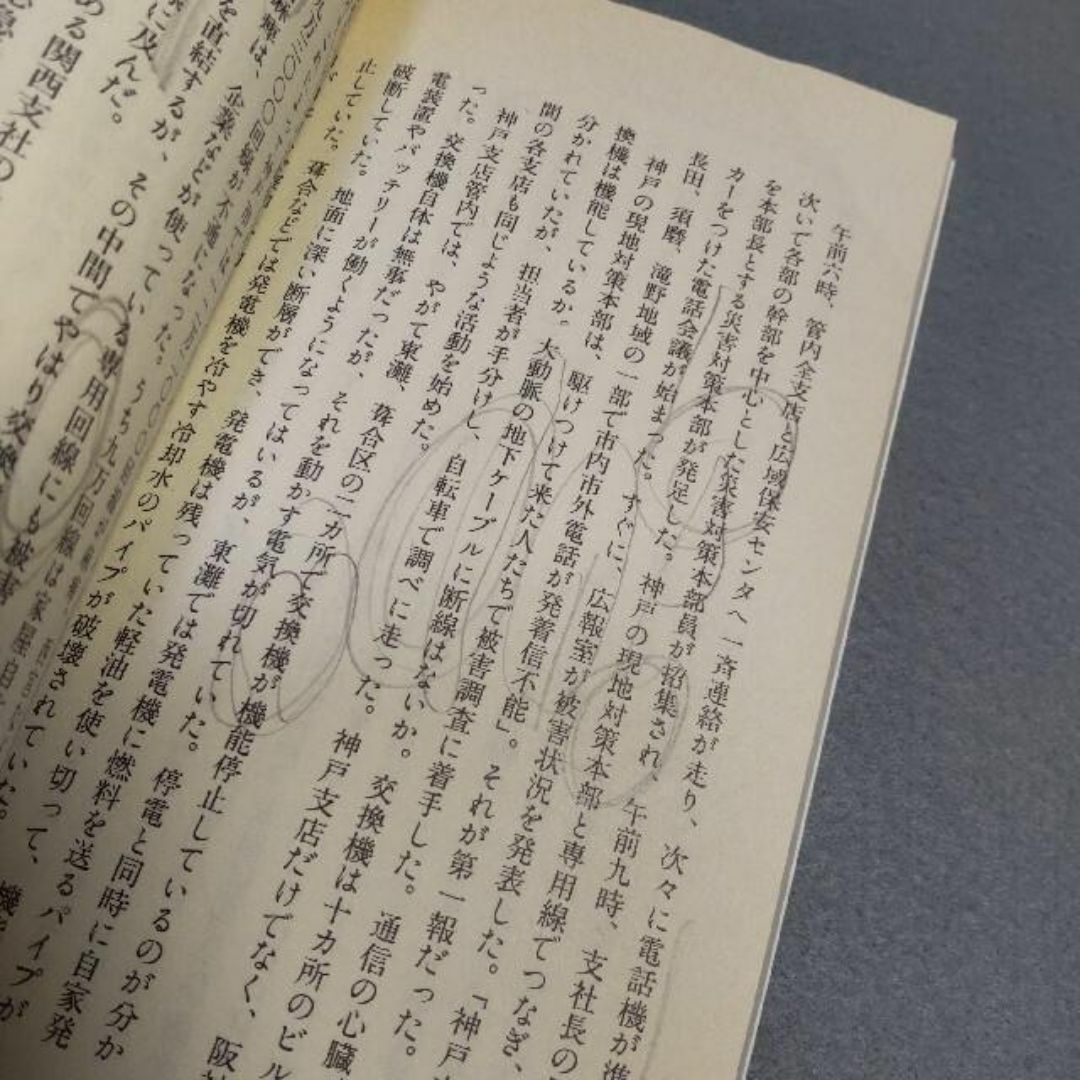 午前六時、管内全支店と広域保安センタへ一斉連絡が走り、次々に電話機が準
次いで各部の幹部を中心とした災害対策本部員が招集され、午前九時、支社長の
を本部長とする災害対策本部が発足した。神戸の現地対策本部と専用線でつなぎ、
カーをつけた電話会議が始まった。すぐに、広報室が被害状況を発表した。「神戸
長田、須磨、滝野地域の一部で市内市外電話が発着信不能」。それが第一報だった。
神戸の現地対策本部は、駆けつけて来た人たちで被害調査に着手した。通信の心臓
換機は機能しているか。大動脈の地下ケーブルに断線はないか。交換機は十カ所のビル
分かれていたが、担当者が手分けし、自転車で調べに走った。神戸支店だけでなく、阪神
間の各支店も同じような活動を始めた。
神戸支店管内では、やがて東灘、葺合区の二カ所で交換機が機能停止しているのが分か
った。交換機自体は無事だったが、それを動かす電気が切れていた。停電と同時に自家発
電装置やバッテリーが働くようになってはいるが、東灘では発電機に燃料を送るパイプが
破断していた。地面に深い断層ができ、発電機は残っていた軽油を使い切って、
止していた。葺合などでは発電機を冷やす冷却水のパイプが破壊されていた。機
ていた。
回線が不通になった。うち九万回線は家屋
は、企業などが使っている専用回線にも被害
を直結するが、その中間でやはり交換
に及んだ。
める関西支社の